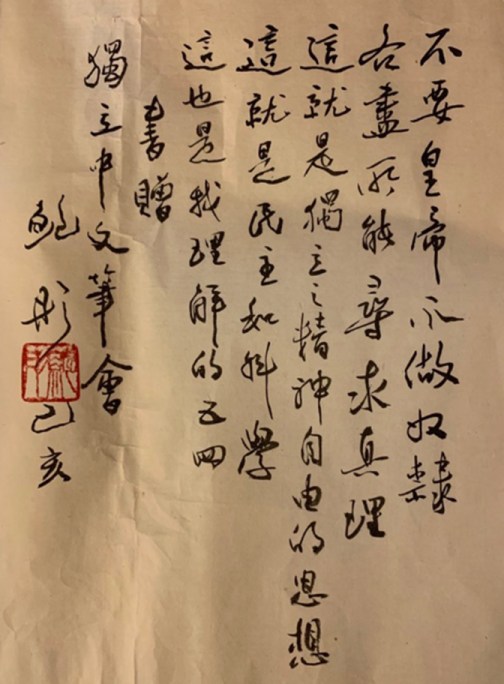 不要皇帝不做奴隸
各盡所能尋求真理
這就是獨立之精神自由的思想
這就是民主和科學
這也是我理解的五四
書贈
獨立中文筆會
鮑彤 己亥